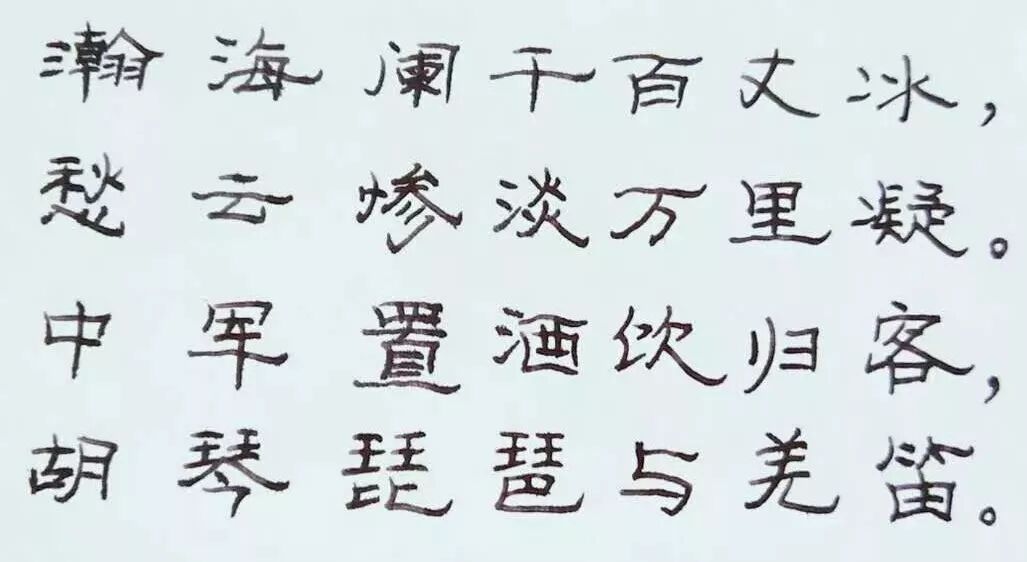 瀚海阑干百丈冰，
愁云惨淡万里凝。
中军置酒饮归客，
胡琴琵琶与羌笛。